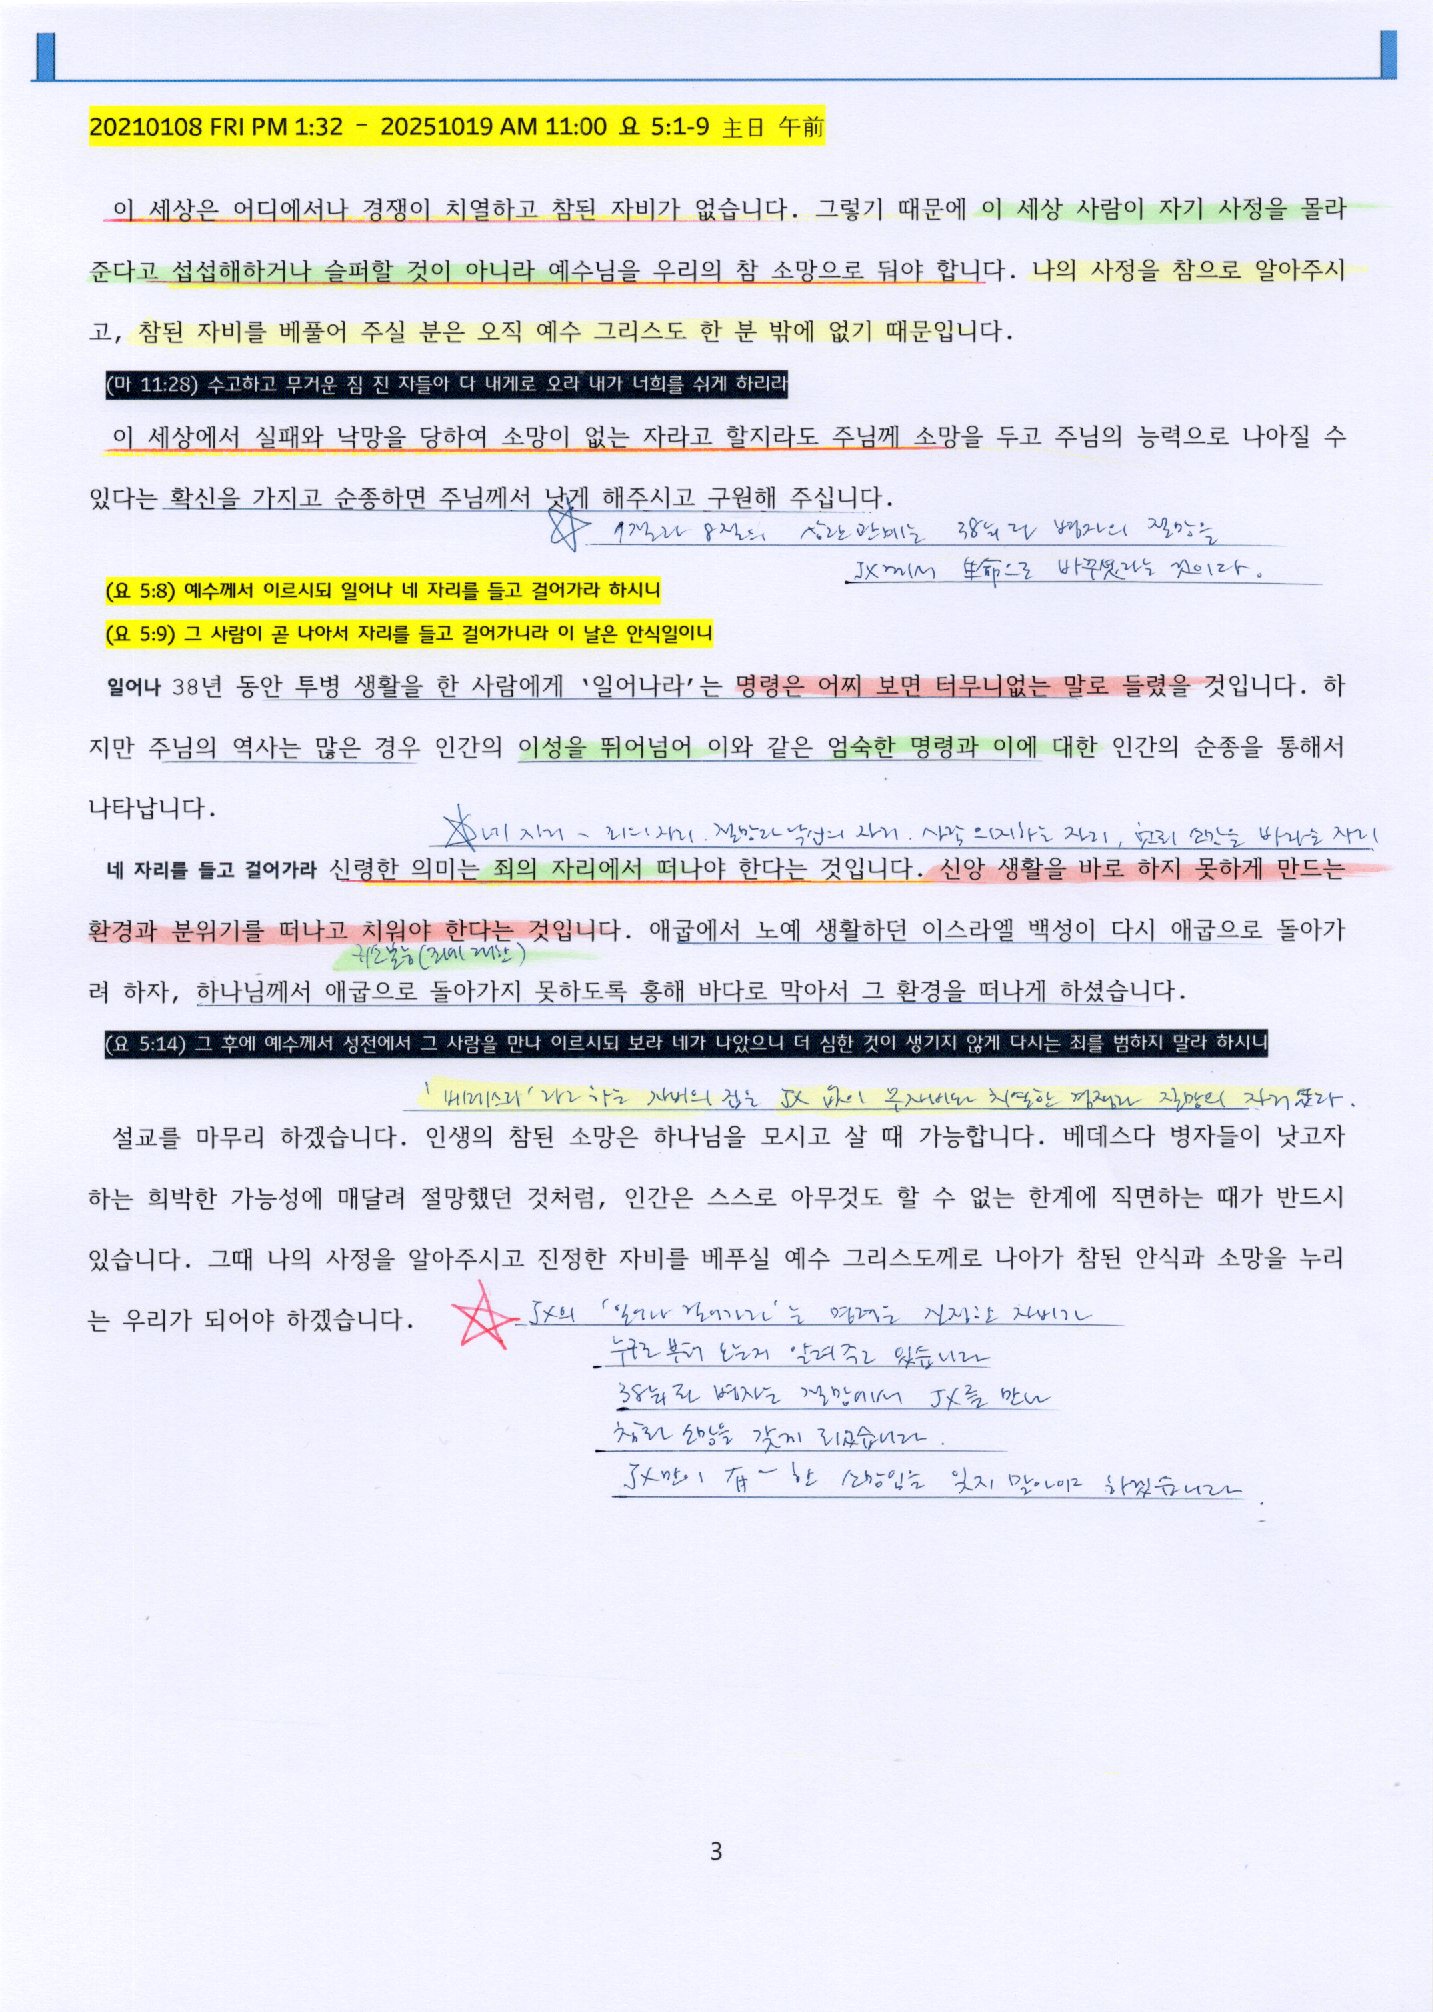 20210108 FRI PM 1:32 - 20251019 AM 11:00 요 5:1-9 主日 午前
이 세상은 어디에서나 경쟁이 치열하고 참된 자비가 없습니다. 그렇기 때문에 이 세상 사람이 자기 사정을 몰라
준다고 섭섭해하거나 슬퍼할 것이 아니라 예수님을 우리의 참 소망으로 둬야 합니다. 나의 사정을 참으로 알아주시
고, 참된 자비를 베풀어 주실 분은 오직 예수 그리스도 한 분 밖에 없기 때문입니다.
(마 11:28) 수고하고 무거운 짐 진 자들아 다 내게로 오라 내가 너희를 쉬게 하리라
이 세상에서 실패와 낙망을 당하여 소망이 없는 자라고 할지라도 주님께 소망을 두고 주님의 능력으로 나아질 수
있다는 확신을 가지고 순종하면 주님께서 낫게 해주시고 구원해 주십니다.
8절의 상관관계는 38년 된 병자의 절망을
JX께서 生命으로 바꾸셨다는 것이다.
(요 5:8) 예수께서 이르시되 일어나 네 자리를 들고 걸어가라 하시니
(요 5:9) 그 사람이 곧 나아서 자리를 들고 걸어가니라 이 날은 안식일이니
일어나 38년 동안 투병 생활을 한 사람에게 ‘일어나라’는 명령은 어찌 보면 터무니없는 말로 들렸을 것입니다. 하
지만 주님의 역사는 많은 경우 인간의 이성을 뛰어넘어 이와 같은 엄숙한 명령과 이에 대한 인간의 순종을 통해서
나타납니다.
네 자리 - 죄의 자리. 절망과 낙심의 자리. 사람 의지하는 자리, 헛된 소망을 바라는 자리
네 자리를 들고 걸어가라 신령한 의미는 죄의 자리에서 떠나야 한다는 것입니다. 신앙 생활을 바로 하지 못하게 만드는
환경과 분위기를 떠나고 치워야 한다는 것입니다. 애굽에서 노예 생활하던 이스라엘 백성이 다시 애굽으로 돌아가
귀소본능(죄에 대한)
려 하자, 하나님께서 애굽으로 돌아가지 못하도록 홍해 바다로 막아서 그 환경을 떠나게 하셨습니다.
(요 5:14) 그 후에 예수께서 성전에서 그 사람을 만나 이르시되 보라 네가 나았으니 더 심한 것이 생기지 않게 다시는 죄를 범하지 말라 하시니
'베데스다'라고 하는 자비의 집은 JX 없이 무자비와 치열한 경쟁과 절망의 자리였다.
설교를 마무리 하겠습니다. 인생의 참된 소망은 하나님을 모시고 살 때 가능합니다. 베데스다 병자들이 낫고자
하는 희박한 가능성에 매달려 절망했던 것처럼, 인간은 스스로 아무것도 할 수 없는 한계에 직면하는 때가 반드시
있습니다. 그때 나의 사정을 알아주시고 진정한 자비를 베푸실 예수 그리스도께로 나아가 참된 안식과 소망을 누리
는 우리가 되어야 하겠습니다.
JX의 '일어나 걸어가라'는 명령은 진정한 자비가
누구로부터 오는지 알려주고 있습니다
38년 된 병자는 절망에서 JX를 만나
참된 소망을 갖게 되었습니다.
JX만이 唯一한 소망임을 잊지 말아야 하겠습니다.
3